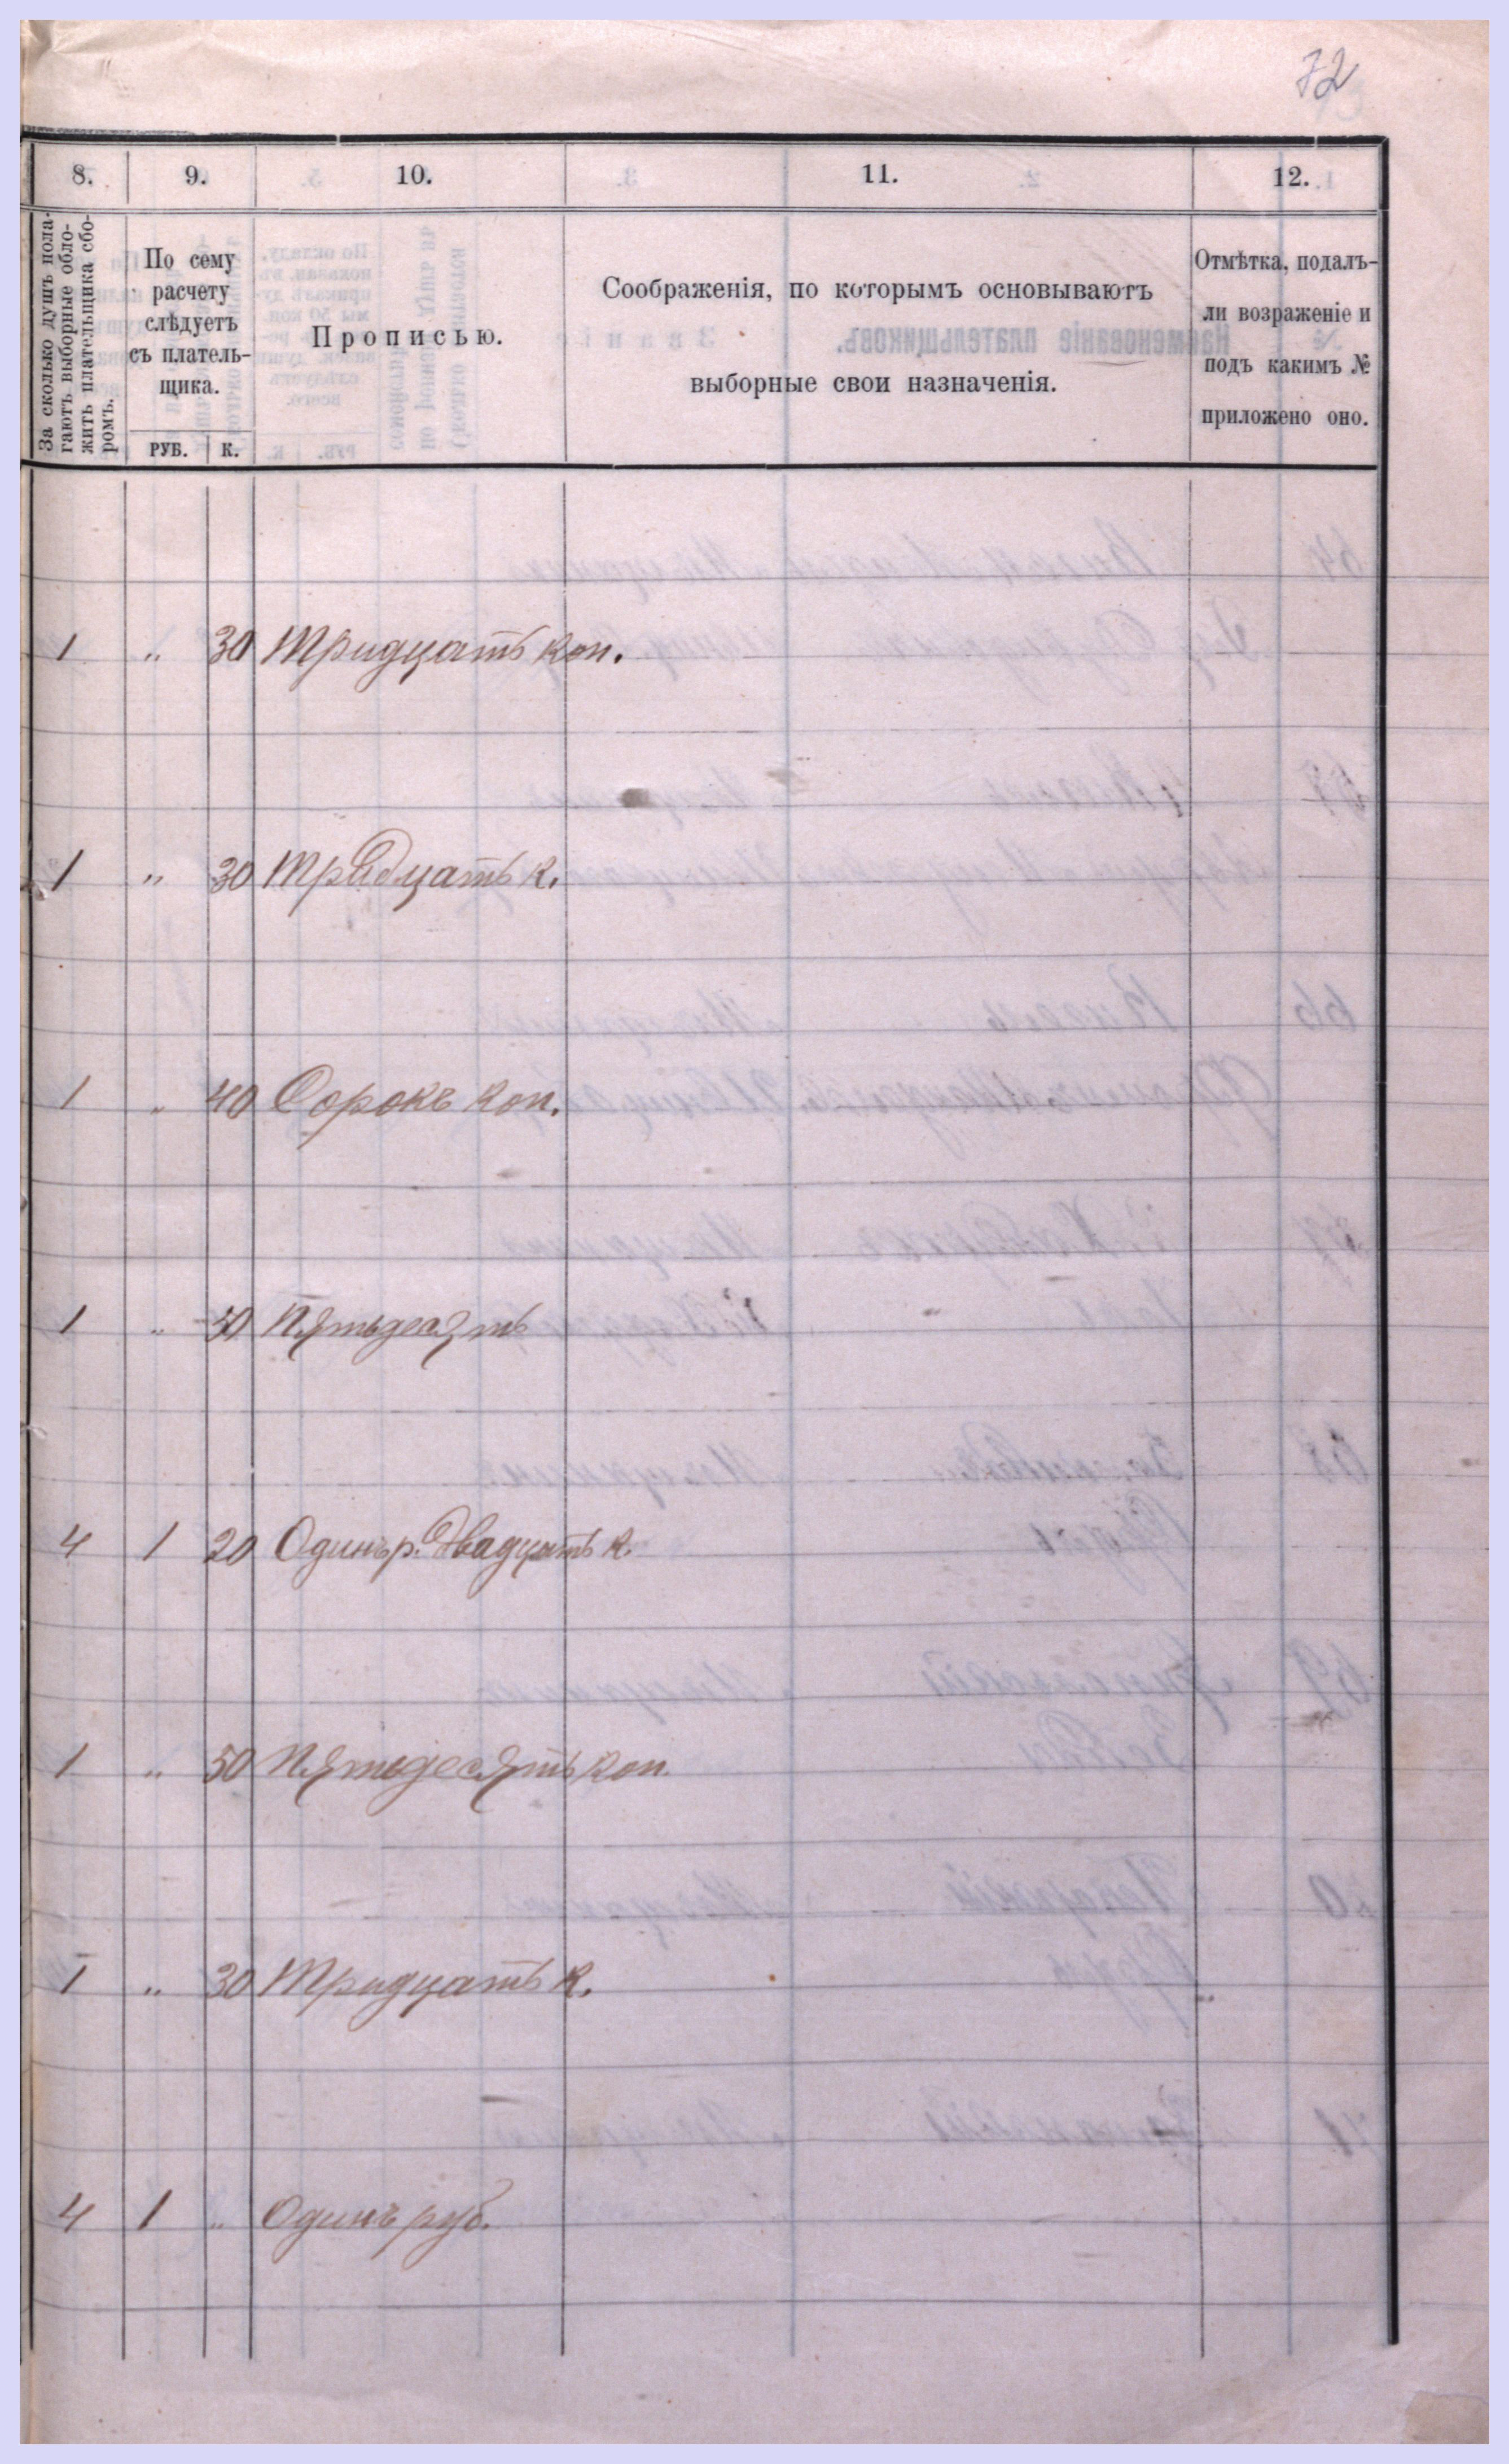 72
8. 9. 10. 11. 12.
За сколько душъ пола-
гаютъ выборные обло-
жить плательщика сбо-
ромъ.
По сему
расчету
слѣдуетъ
съ платель-
щика.
РУБ. К.
Прописью.
Соображенія, по которымъ основываютъ
выборные свои назначенія.
Отмѣтка, подалъ-
ли возраженіе и
подъ какимъ №
приложено оно.
1 " 30 Тридцать коп.
1 " 30 Тридцать к.
1 " 40 Сорокъ коп.
1 " 50 Пятьдесятъ
4 1 20 Одинъ р. двадцать к.
1 " 50 Пятьдесятъ коп.
1 " 30 Тридцать к.
4 1 " Одинъ руб.